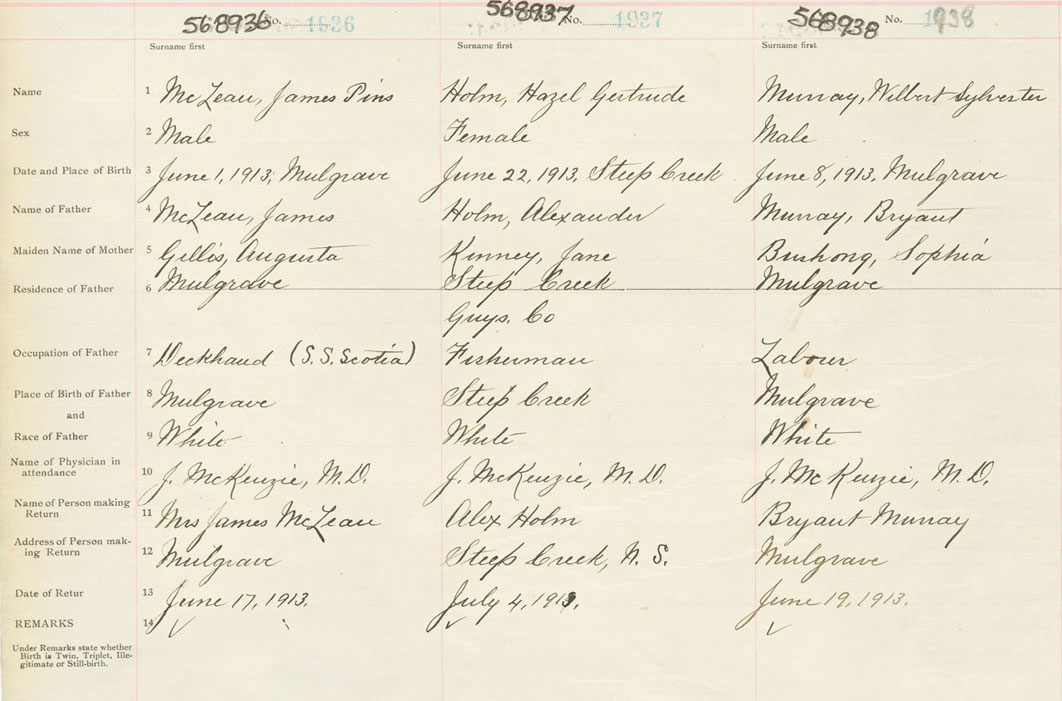 568936 No. 1936 568937 No. 1937 568938 No. 1938
Surname first Surname first Surname first
Name 1 McLean, James Pins Holm, Hazel Gertrude Murray, Wilbert Sylvester
Sex 2 Male Female Male
Date and Place of Birth 3 June 1, 1913, Mulgrave June 22, 1913, Steep Creek June 8, 1913, Mulgrave
Name of Father 4 McLean, James Holm, Alexander Murray, Bryant
Maiden Name of Mother 5 Gillis, Augusta Kinney, Jane Bushong, Sophia
Residence of Father 6 Mulgrave Steep Creek Mulgrave
Guys. Co
Occupation of Father 7 Deckhand (S.S. Scotia) Fisherman Labour
Place of Birth of Father 8 Mulgrave Steep Creek Mulgrave
and
Race of Father 9 White White White
Name of Physician in
attendance 10 J. McKenzie, M.D. J. McKenzie, M.D. J. McKenzie, M.D.
Name of Person making
Return 11 Mrs James McLean Alex Holm Bryant Murray
Address of Person mak-
ing Return 12 Mulgrave Steep Creek, N.S. Mulgrave
Date of Retur 13 June 17, 1913. July 4, 1913. June 19, 1913.
REMARKS 14
Under Remarks state whether
Birth is Twin, Triplet, Ille-
gitimate or Still-birth.